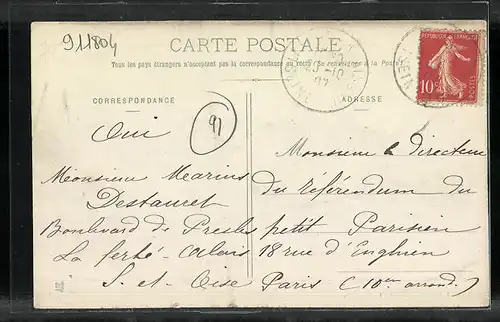 911804
CARTE POSTALE
Tous les pays étrangers n'acceptent pas la correspondance au recto (Se renseigner à la Poste)
REPUBLIQUE FRANÇAISE
10c
POSTES
CORRESPONDANCE
ADRESSE
Oui
91
Monsieur le Directeur
Monsieur Marius
du Référendum du
Destauret
petit Parisien
Boulevard de Presles
18 rue d'Enghien
La ferté-Alais
Paris (10em arrond.)
S. et Oise